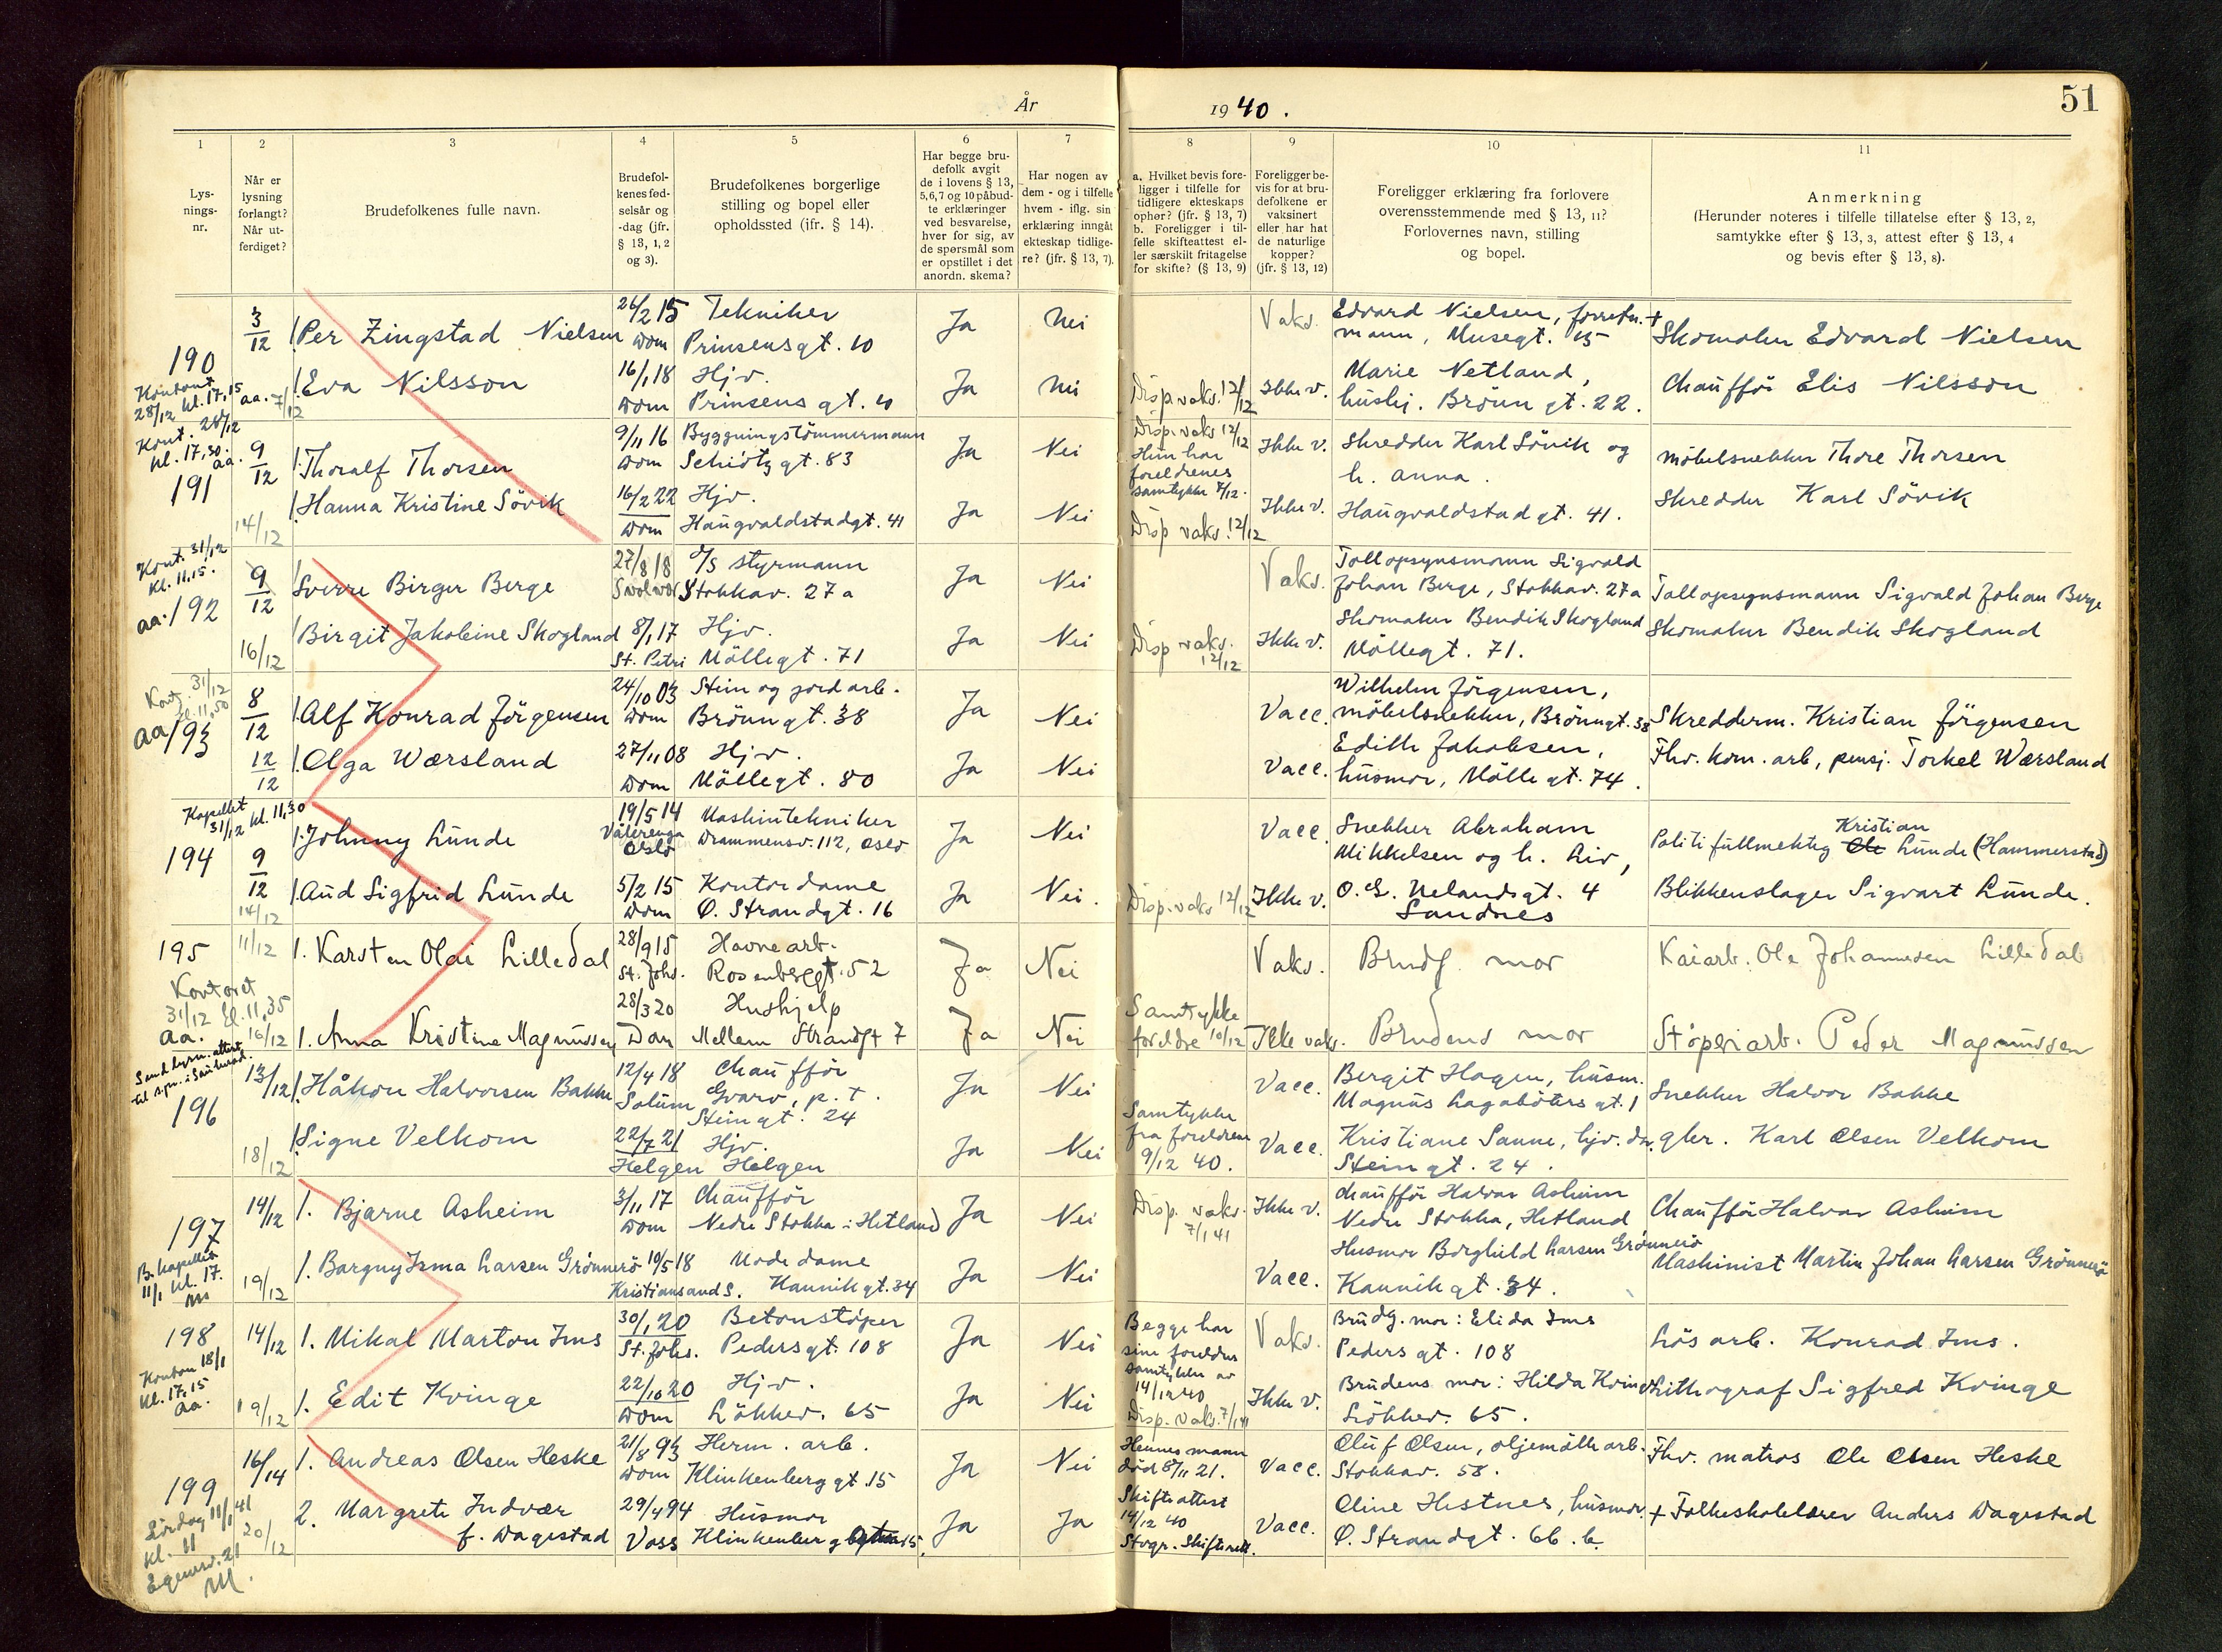 År 1940.
51
1 2 3 4 5 6 7 8 9 10 11
Lys-
nings-
nr.
Når er
lysning
forlangt?
Når ut-
ferdiget?
Brudefolkenes fulle navn.
Brudefol-
kenes fød-
selsår og
-dag (jfr.
§ 13, 1, 2
og 3).
Brudefolkenes borgerlige
stilling og bopel eller
opholdssted (jfr. § 14).
Har begge bru-
defolk avgit
de i lovens § 13,
5,6,7 og 10 påbud-
te erklæringer
ved besvarelse,
hver for sig, av
de spørsmål som
er opstillet i det
anordn. skema?
Har nogen av
dem - og i tilfelle
hvem - iflg. sin
erklæring inngåt
ekteskap tidlige-
re? (jfr. § 13, 7).
a. Hvilket bevis fore-
ligger i tilfelle for
tidligere ekteskaps
ophør? (jfr. § 13, 7)
b. Foreligger i til-
felle skifteattest el-
ler særskilt fritagelse
for skifte? (§ 13, 9)
Foreligger be-
vis for at bru-
defolkene er
vaksinert
eller har hat
de naturlige
kopper?
(jfr. § 13, 12)
Foreligger erklæring fra forlovere
overensstemmende med § 13, 11?
Forlovernes navn, stilling
og bopel.
Anmerkning
(Herunder noteres i tilfelle tillatelse efter § 13, 2,
samtykke efter § 13, 3, attest efter § 13, 4
og bevis efter § 13, 8).
190
28/12 kl. 17,15
aa. 7/12
3/12
1. Per Zingstad Nielsen
26/2 15
Dom
Tekniker
Prinsensgt. 10
Ja
Nei
Vaks.
Edvard Nielsen,
mann, Musegt. 15
+ Skomaker Edvard Nielsen
1. Eva Nilsson
16/1 18
Dom
Hjv.
Prinsens gt. 10
Ja
Nei
Disp. vaks. 12/12
Ikke v.
Marie Netland,
hushj. Brönngt. 22.
Chaufför Elis Nilsson
Kont. 28/12
kl. 17,30.
aa.
191
9/12
1. Thoralf Thorsen
9/11 16
Dom
Byggningstömmermann
Schiötzgt. 83
Ja
Nei
Disp. vaks 12/12
Hun har
foreldrenes
samtykke 7/12.
Ikke v.
Skredder Karl Sövik og
h. Anna.
Möbelsnekker Thore Thorsen
14/12
1. Hanna Kristine Sövik
16/2 22
Dom
Hjv.
Haugvaldstadgt. 41
Ja
Nei
Disp vaks. 12/12
Ikke v.
Haugvaldstadgt. 41.
Skredder Karl Sövik
Kont. 31/12
kl. 11.15.
aa. 192
9/12
1. Sverre Birger Berge
27/8 18
Svolvær
D/S styrmann
Stokkav. 27a
Ja
Nei
Vaks.
Tollopsynsmann Sigvald
Johan Berge, Stokkav. 27a
Tollopsynsmann Sigvald Johan Berge
16/12
1. Birgit Jakobine Skogland
8/1 17
St. Petri
Hjv.
Möllegt. 71
Ja
Nei
Disp vaks.
12/12
Ikke v.
Skomaker Bendik Skogland
Möllegt. 71.
Skomaker Bendik Skogland
Kont. 31/12
kl. 11,50
aa 193
8/12
1. Alf Konrad Jörgensen
24/10 03
Dom
Stein og jordarb.
Brönngt. 38
Ja
Nei
Vacc.
Wilhelm Jörgensen,
möbelsnekker, Brönngt. 38
Skredderm. Kristian Jörgensen
12/12
1. Olga Wærsland
27/11 08
Dom
Hjv.
Möllegt. 80
Ja
Nei
Vacc.
Edith Jakobsen,
husmor, Möllegt. 74.
Fhv. kom. arb, pensj. Torkel Wærsland
Kapellet
31/12 kl. 11,30
194
9/12
1. Johnny Lunde
19/5 14
Vålerenga
Oslo
Maskintekniker
Drammensv. 112, Oslo
Ja
Nei
Vacc.
Snekker Abraham
Mikkelsen og h. Liv,
Kristian
Politifullmektig Ole Lunde (Hammerstad)
14/12
1. Aud Sigfrid Lunde
5/2 15
Dom
Kontordame
Ø. Strandgt. 16
Ja
Nei.
Disp. vaks 12/12
Ikke v.
O. G. Uelandsgt. 4
Sandnes
Blikkenslager Sigvart Lunde.
195
Kontoret
31/12 kl. 11,35
aa.
11/12
1. Karsten Olai Lilledal
28/9 15
St. Johs.
Havnearb.
Rosenberggt. 52
Ja
Nei
Vaks.
Brudg. mor
Kaiarb. Ole Johannesen Lilledal
16/12
1. Anna Kristine Magnussen
28/3 20
Dom
Hushjelp
Mellem Strandgt 7
Ja
Nei
Samtykke
foreldre 10/12
Ikke vaks.
Brudens mor
Stöperiarb. Peder Magnussen
Send lysn. attest
til spr. i Sauherad.
196
13/12
1. Håkon Halvorsen Bakke
12/4 18
Solum
Chaufför
Gvarv, p.t.
Steingt. 24
Ja
Nei
Vacc.
Bergit Hagen, husm.
Magnus Lagabötersgt. 1
Snekker Halvor Bakke
18/12
1. Signe Velkom
22/7 21
Helgen
Hjv.
Helgen
Ja
Nei
Samtykke
fra foreldrene
9/12 40.
Vacc.
Kristiane Sanne, hjv.
Steingt. 24.
gbr. Karl Olsen Velkom
197
B. kapellet
11/1 kl. 17.
14/12
1. Bjarne Asheim
3/11 17
Dom
Chaufför
Nedre Stokka i Hetland
Ja
Nei
Disp. vaks.
7/1 41
Ikke v.
Chaufför Halvar Asheim
Nedre Stokka, Hetland
Chaufför Halvar Asheim
19/12
1. Borgny Irma Larsen Grönnerö
10/5 18
Kristiansand S.
Modedame
Kannikgt. 34
Ja
Nei
Vacc.
Husmor Borghild Larsen Grönnerö
Kannikgt. 34.
Maskinist Martin Johan Larsen Grönnerö
198
18/1
kl. 17,15
aa.
14/12
1. Mikal Marton Ims
30/1 20
St. Johs.
Betonstöper
Pedersgt. 108
Ja
Nei
Begge har
sine foreldres
samtykke av
14/12 40
Vaks.
Brudg. mor: Elida Ims
Pedersgt. 108
Lösarb. Konrad Ims.
19/12
1. Edit Kvinge
22/10 20
Dom
Hjv.
Lökkev. 65
Ja
Nei
Disp. vaks. 7/1 41
Ikke v.
Brudens mor: Hilda Kvinge
Lökkev. 65.
Lithograf Sigfred Kvinge
199
Lördag 11/1 41
kl. 11
Egenesv. 21
16/14
1. Andreas Olsen Heske
21/8 93
Dom
Herm. arb.
Klinkenberggt. 15
Ja
Nei
Hennes mann
död 8/11 21.
Vacc.
Oluf Olsen, oljemöllearb.
Stokkav. 58.
Fhv. matros Ole Olsen Heske
20/12
2. Margrete Indvær
f. Dagestad
29/4 94
Voss
Husmor
Klinkenberggt. 15.
Ja
Ja
Skifteattest
14/12 40
Stvgr. Skifterett.
Vacc.
Oline Hestnes, husmor.
Ø. Strandgt. 66.b.
+ Folkeskolelærer Anders Dagestad